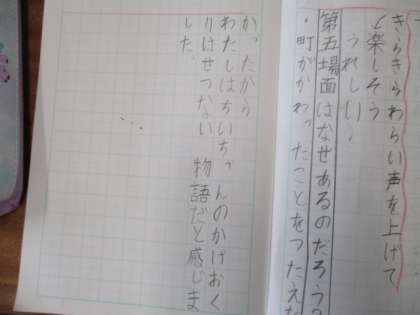 きらきらわらい声を上げて
く楽しそう
うれしい。
第五場面はなぜあるのだろう?
・町がかわったことをつたえな
かったから
わたしはちいちゃんのかげおく
りはせつない物語だと感じま
した。